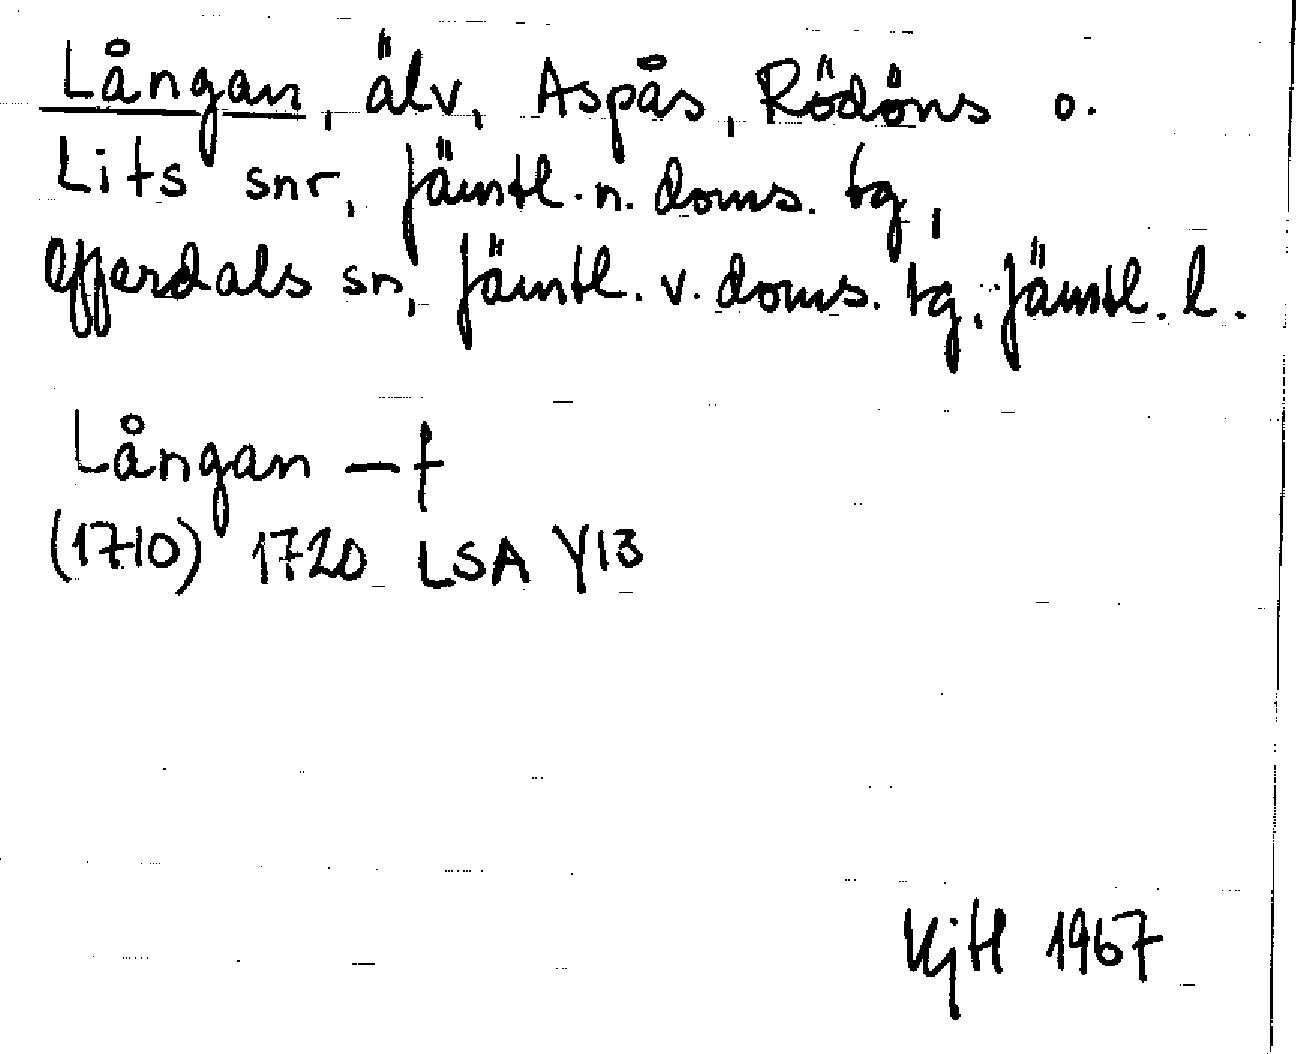 Långan, älv, Aspås, Rödöns o.
Lits snr, Jämtl. n. doms. tg,
Offerdals sn, Jämtl. v. doms. tg, Jämtl. l.
Långan — f
(1710) 1720 LSA Y13
KjH 1967